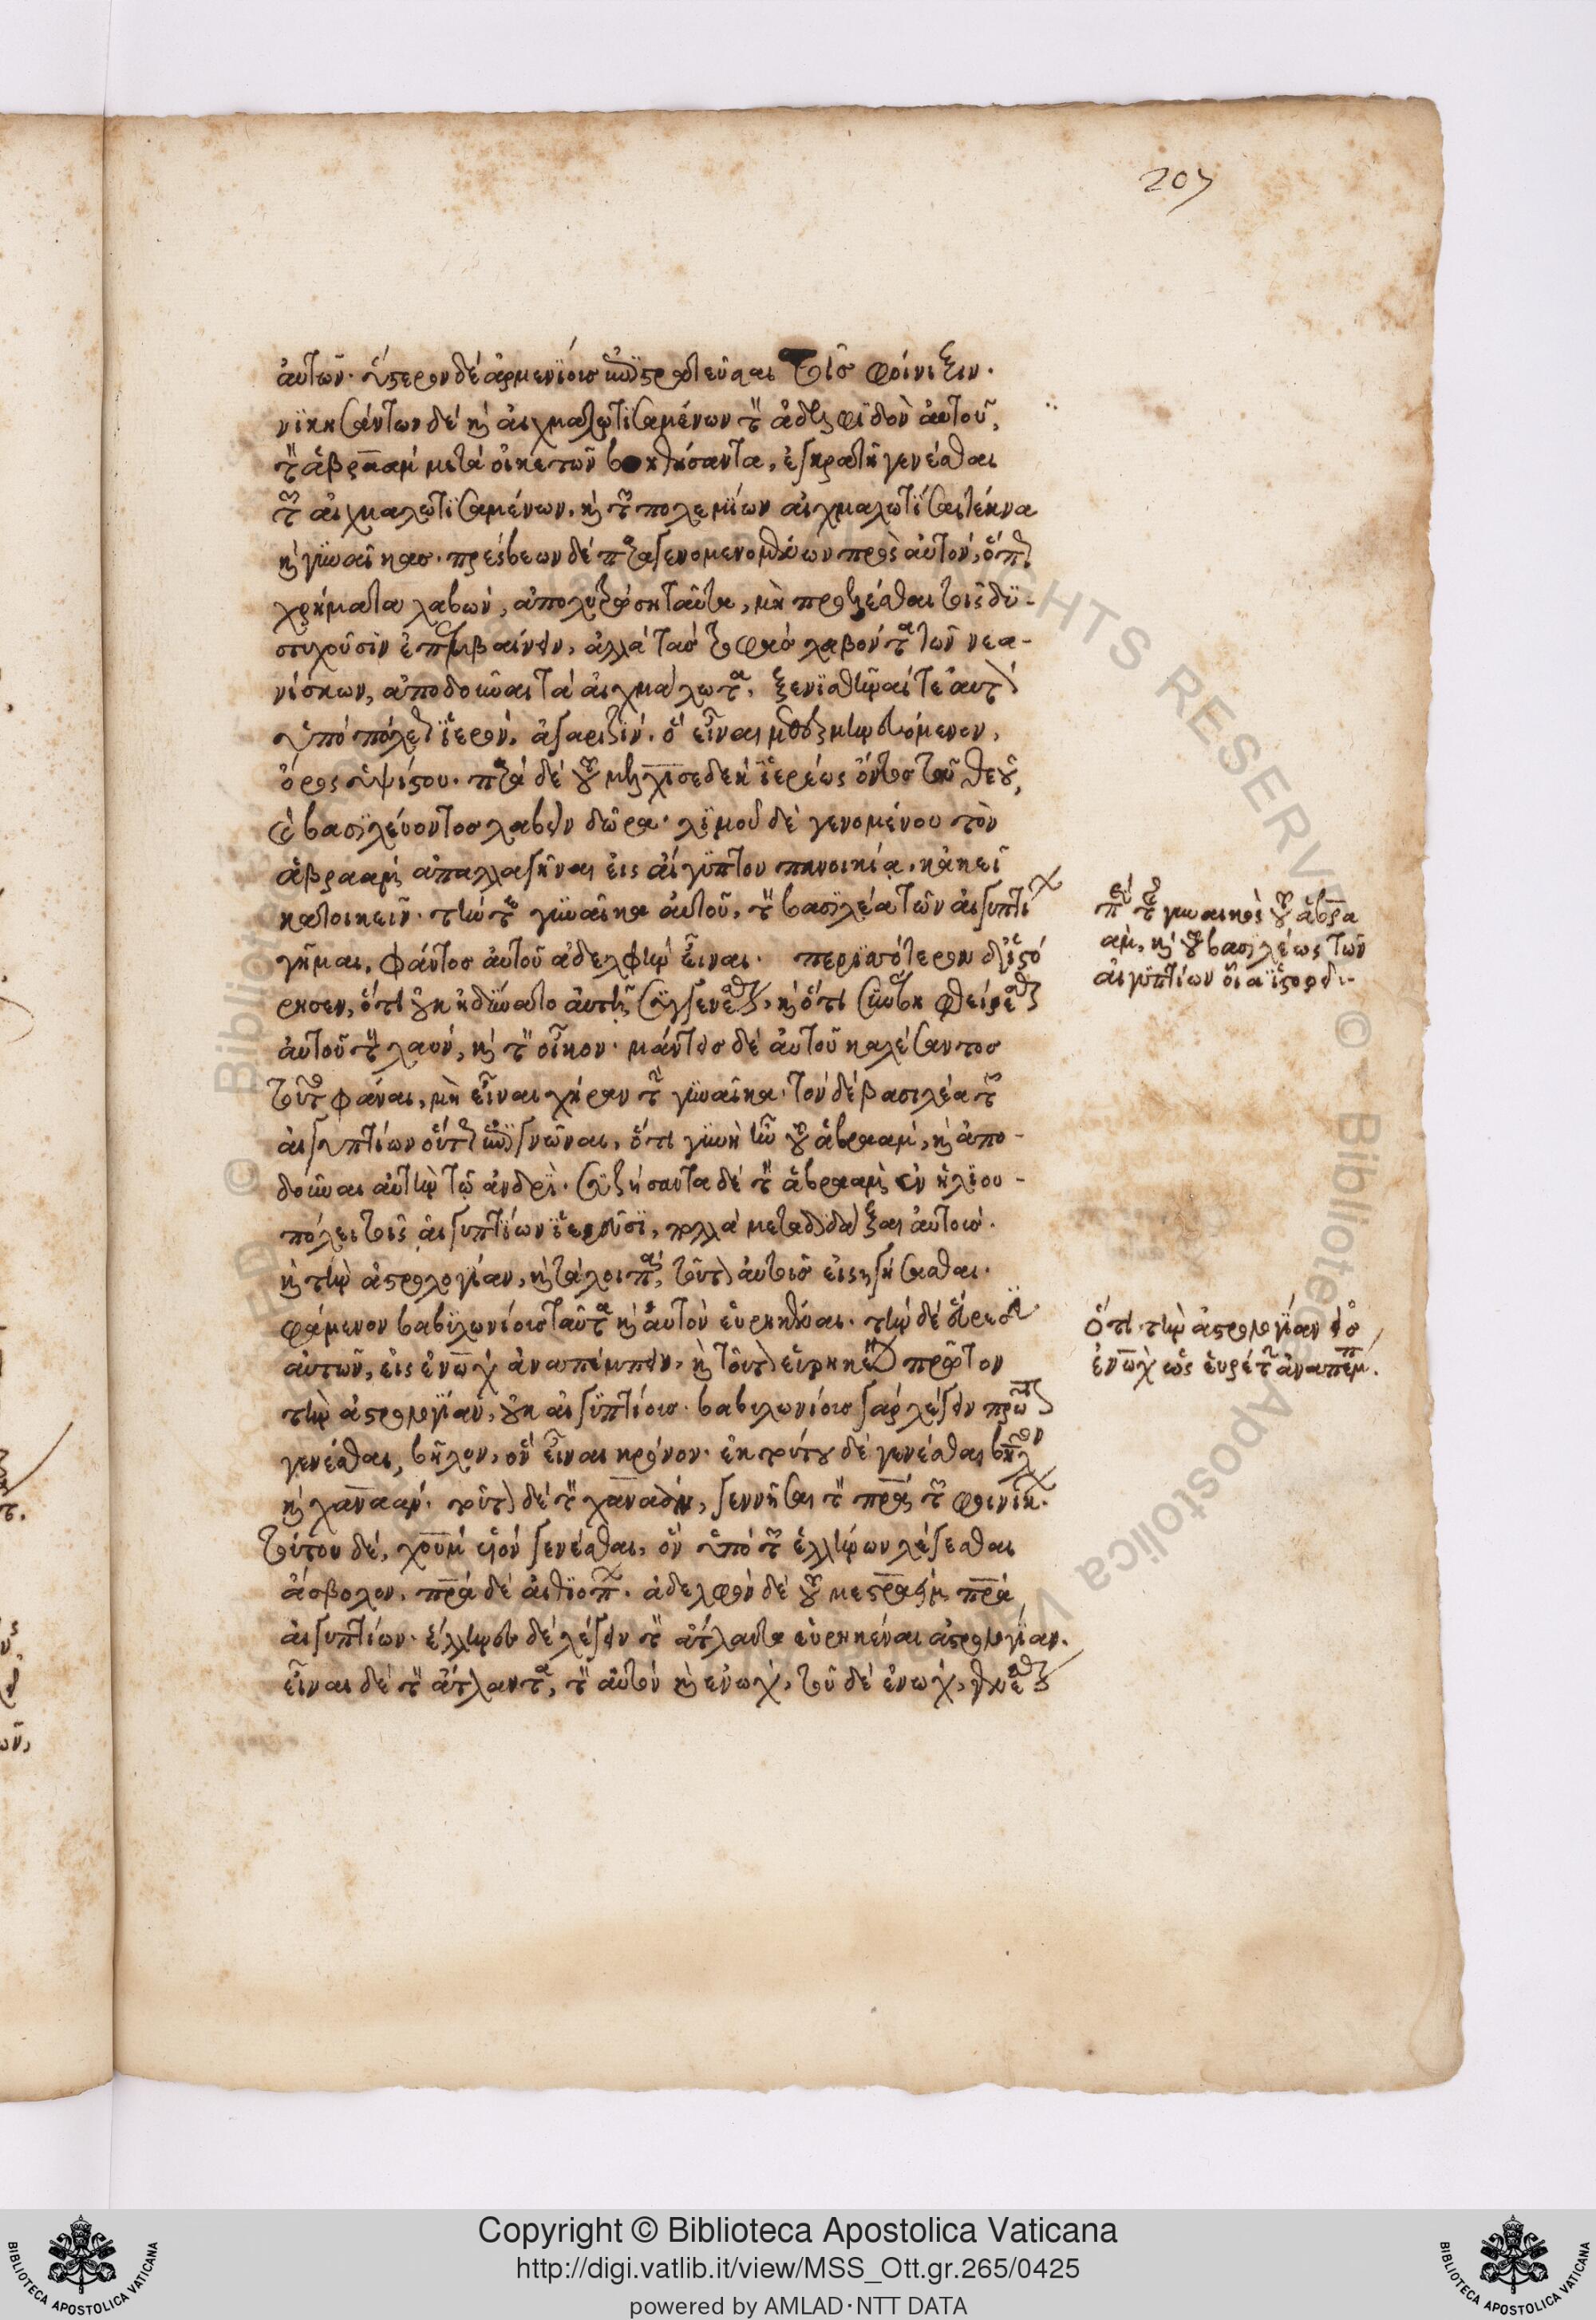 207
αὐτῶν· ὕστερον δὲ ἀρμενίοις ἐπιστρατεῦσαι τοῖς φοίνιξιν·
νϊκησάντων δὲ καὶ αἰχμαλωτϊσαμένων τὸν ἀδελφϊδοῦν αὐτοῦ,
τὸν ἁβραὰμ μετὰ οἰκετῶν βοηθήσαντα, ἐγκρατῆ γενέσθαι
τῶν αἰχμαλωτϊσαμένων, καὶ τῶν πολεμΐων αἰχμαλωτΐσαι τέκνα
καὶ γυναῖκας· πρέσβεων δὲ παραγενομένων πρὸς αὐτὸν, ὅπως
χρήματα λαβὼν, ἀπολυτρώσῃ ταῦτα, μὴ προελέσθαι τοῖς δυ-
στυχοῦσιν ἐπεμβαίνειν, ἀλλὰ τὰς τροφὰς λαβόντα τῶν νεα-
νίσκων, ἀποδοῦναι τὰ αἰχμάλωτα, ξενϊσθῆναί τε αὐτὸν
ὑπὸ πόλεως ἱερὸν, ἀργαριζΐν, ὃ εἶναι μεθερμηνευόμενον,
ὄρος ὑψίστου· παρὰ δὲ τοῦ μελχισεδὲκ ἱερέως ὄντος τοῦ θεοῦ,
καὶ βασϊλεύοντος λαβεῖν δῶρα· λϊμοῦ δὲ γενομένου τὸν
ἁβραὰμ ἀπαλλαγῆναι εἰς αἴγυπτον πανοικίᾳ, κἀκεῖ
κατοικεῖν· τήν τε γυναῖκα αὐτοῦ, τὸν βασϊλέα τῶν αἰγυπτίων
γῆμαι, φάντος αὐτοῦ ἀδελφὴν εἶναι· περισσότερον δ' ἱστό
ρησεν, ὅτι οὐκ ἠδύνατο αὐτῇ συγγενέσθαι, καὶ ὅτι συνέβη φθείρεσθαι
αὐτοῦ τὸν λαὸν, καὶ τὸν οἶκον· μάντεις δὲ αὐτοῦ καλέσαντος
τοῦτο φάναι, μὴ εἶναι χήραν τὴν γυναῖκα· τὸν δὲ βασιλέα τῶν
αἰγυπτίων οὕτως ἐπιγνῶναι, ὅτι γυνὴ ἦν τοῦ ἁβραὰμ, καὶ ἀπο-
δοῦναι αὐτὴν τῷ ἀνδρὶ· συζήσαντα δὲ τὸν ἁβραὰμ ἐν ἡλϊου-
πόλει τοῖς αἰγυπτΐων ἱερεῦσϊ, πολλὰ μεταδϊδάξαι αὐτοὺς·
καὶ τὴν ἀστρολογίαν, καὶ τὰ λοιπὰ, τοῦτον αὐτοῖς εἰσηγήσασθαι·
φάμενον βαβυλωνίους ταῦτα καὶ αὐτὸν εὑρηκέναι· τὴν δὲ εὕρεσιν
αὐτῶν, εἰς ἐνὼχ ἀναπέμπειν, καὶ τοῦτον εὑρηκέναι πρῶτον
τὴν ἀστρολογίαν, οὐκ αἰγυπτίους· βαβυλωνίους γὰρ λέγειν πρῶτον
γενέσθαι βῆλον, ὃν εἶναι κρόνον· ἐκ τούτου δὲ γενέσθαι βῆλον
καὶ χαναάν· τοῦτον δὲ τὸν χαναὰν, γεννῆσαι τὸν πατέρα τῶν φοινίκων·
τούτου δὲ, χοὺμ υἱὸν γενέσθαι, ὃν ὑπὸ τῶν ἑλλήνων λέγεσθαι
ἄσβολον, πατέρα δὲ αἰθϊόπων· ἀδελφὸν δὲ τοῦ μεστραεὶμ πατρὸς
αἰγυπτίων· ἕλληνας δὲ λέγειν τὸν ἄτλαντα εὑρηκέναι ἀστρολογΐαν·
εἶναι δὲ τὸν ἄτλαντα, τὸν αὐτὸν καὶ ἐνὼχ, τοῦ δὲ ἐνὼχ, γενέσθαι
περὶ τῆς γυναικὸς τοῦ ἁβρα
ὰμ, καὶ τοῦ βασϊλέως τῶν
αἰγυπτίων οἷα ἱστορεῖ·
ὅτι τὴν ἀστρολογΐαν εἰς
ἐνὼχ ὡς εὑρέτην ἀναπέμπει·
Copyright © Biblioteca Apostolica Vaticana
http://digi.vatlib.it/view/MSS_Ott.gr.265/0425
powered by AMLAD·NTT DATA
BIBLIOTECA APOSTOLICA VATICANA
BIBLIOTECA APOSTOLICA VATICANA